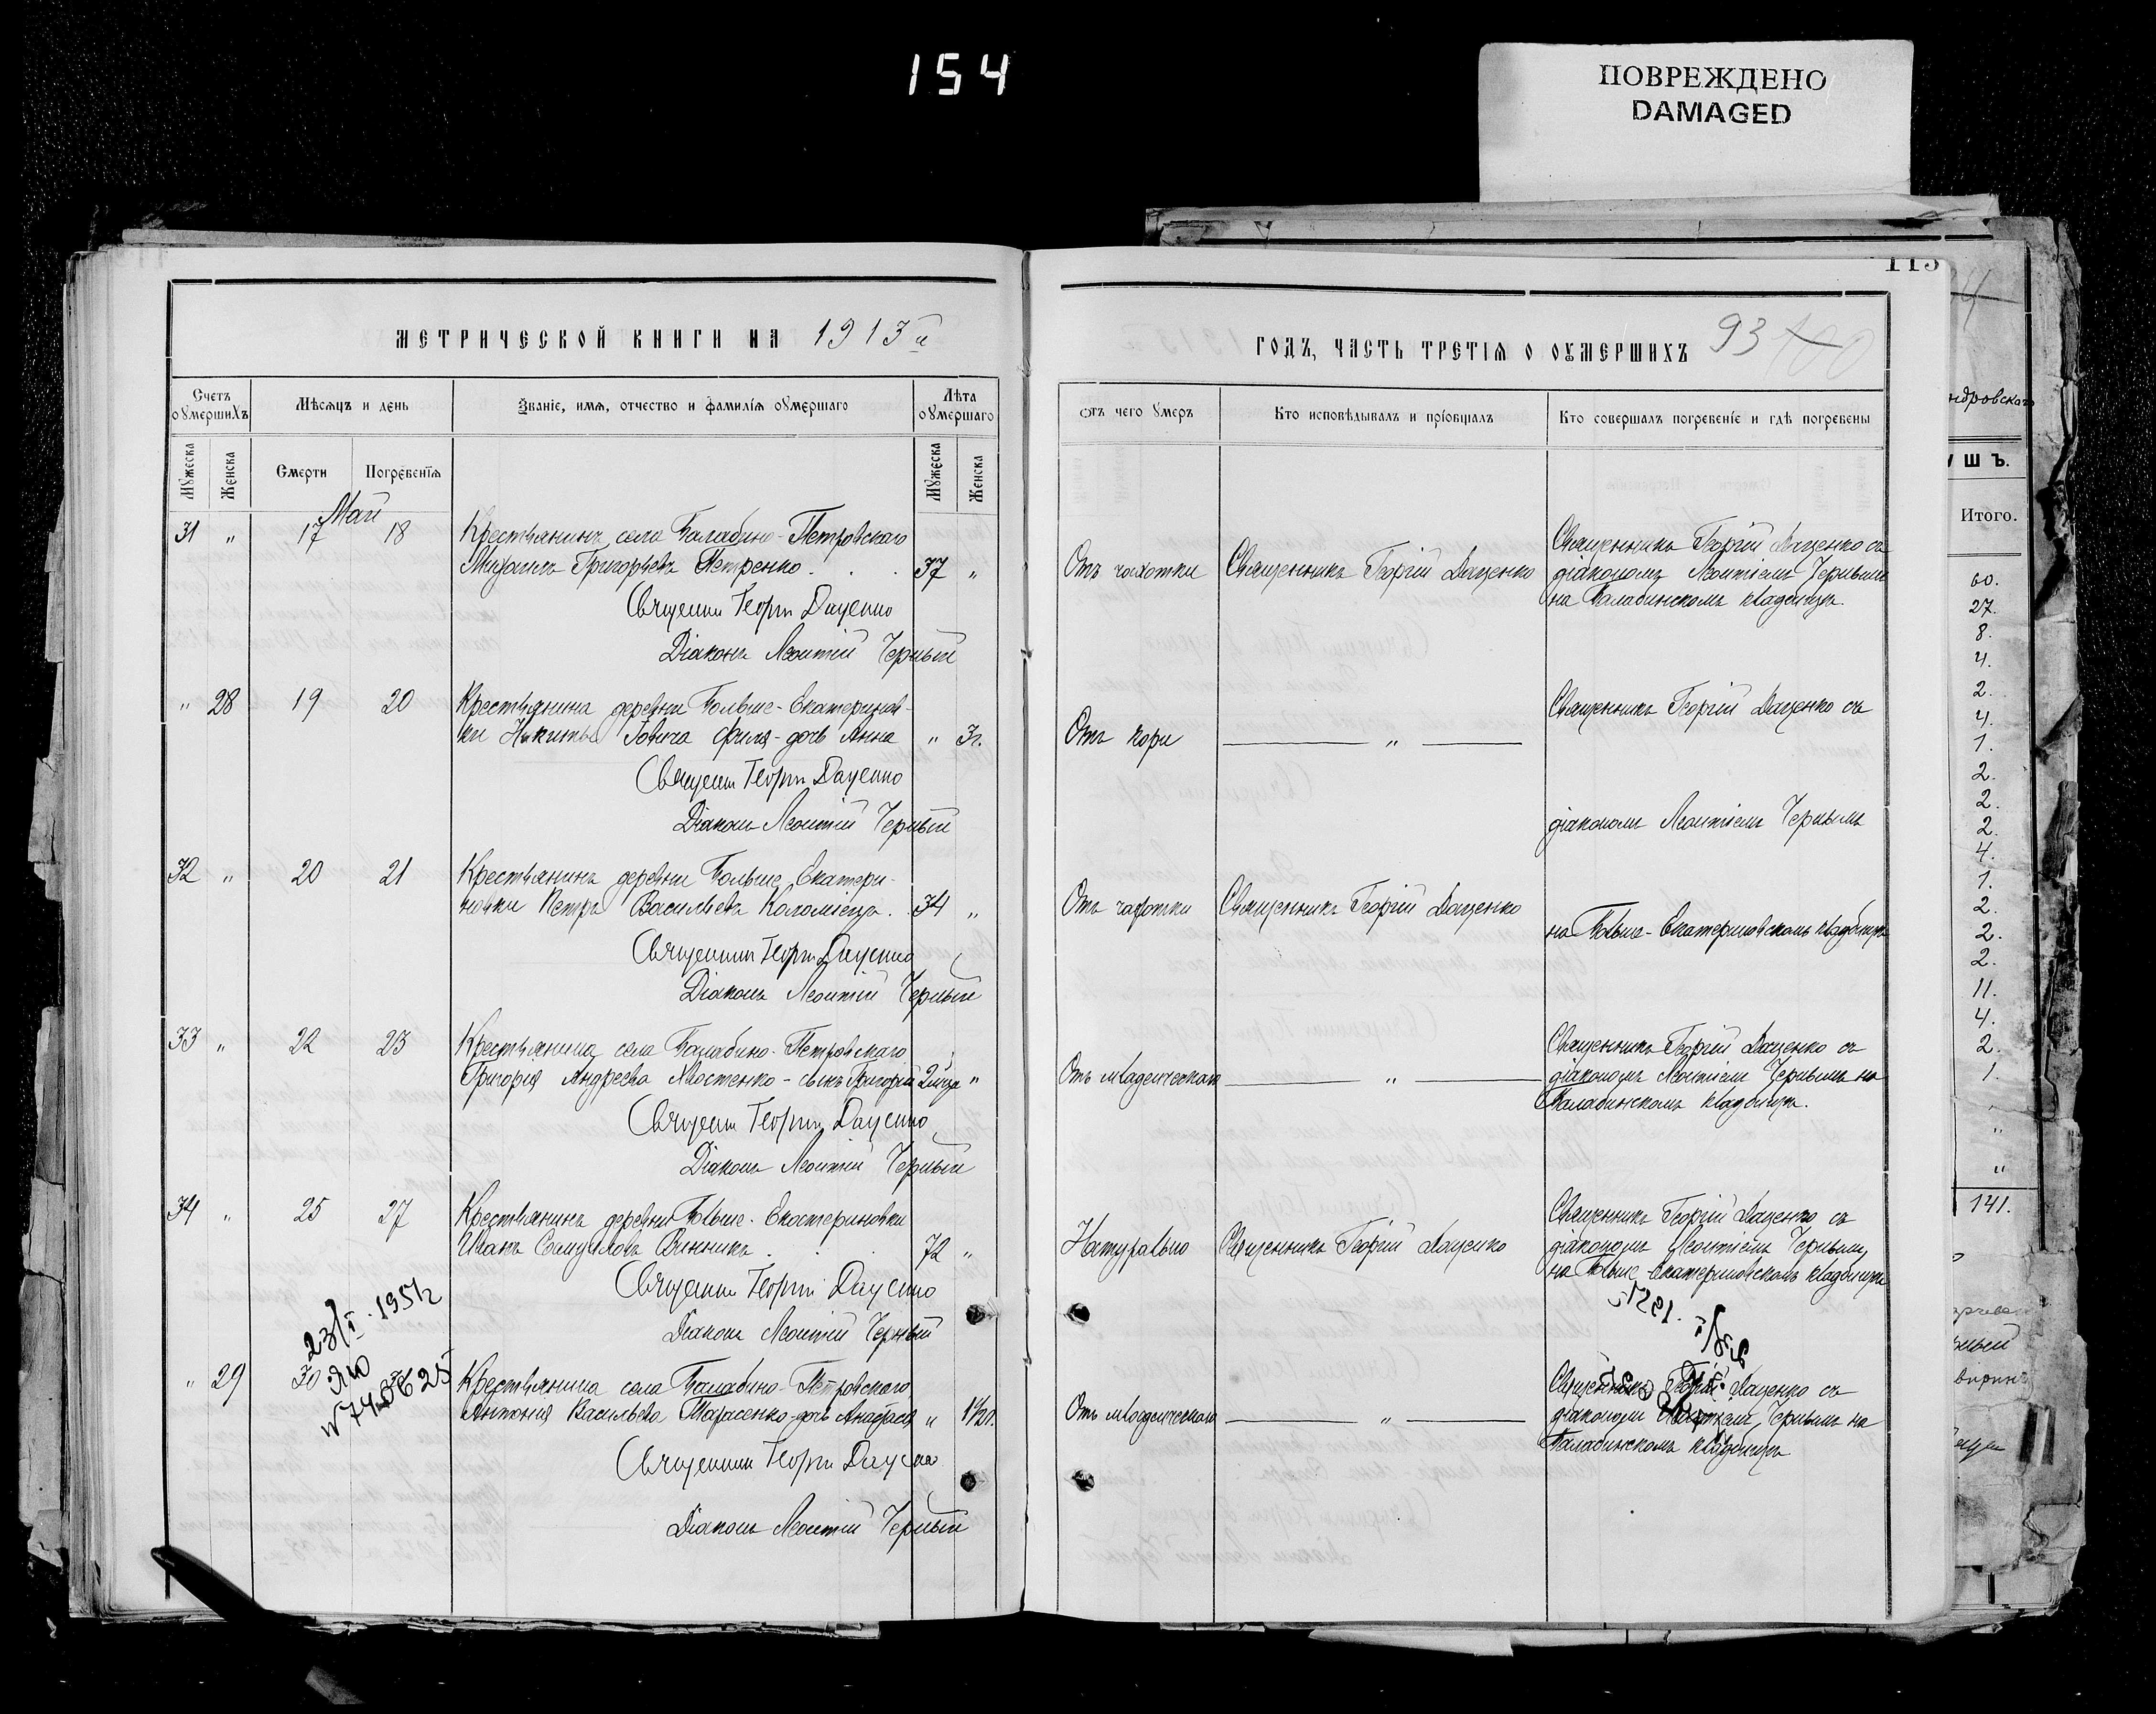 154
ПОВРЕЖДЕНО
DAMAGED
115
МЕТРИЧЕСКОЙ КНИГИ НА 1913й
ГОДЪ, ЧАСТЬ ТРЕТІЯ О ОУМЕРШИХЪ 93 100
Счетъ оумершихъ
Мѣсяцъ и день
Званіе, имя, отчество и фамилія оумершаго
Лѣта оумершаго
Отъ чего умеръ
Кто исповѣдывалъ и пріобщалъ
Кто совершалъ погребеніе и гдѣ погребены
Мужеска
Женска
Смерти
Погребенія
Мужеска
Женска
Май
31 " 17 18 Крестьянинъ села Балабино-Петровскаго
Михаилъ Григорьевъ Петренко . . . 37 "
Священни Георги Даценко
Діаконъ Леонтій Черный
Отъ чахотки Священникъ Георгій Даценко
Священникъ Георгій Даценко съ
діакономъ Леонтіемъ Чернымъ
на Балабинскомъ кладбищѣ.
" 28 19 20 Крестьянина деревни Больше-Екатеринов-
ки Никиты Іовича Филя-дочь Анна " 3г.
Священни Георги Даценко
Діаконъ Леонтій Черный
Отъ кори "
Священникъ Георгій Даценко съ
діакономъ Леонтіемъ Чернымъ
32 " 20 21 Крестьянинъ деревни Больше Екатери-
новки Петръ Васильевъ Коломіецъ . 34 "
Священни Георги Даценко
Діаконъ Леонтій Черный
Отъ чахотки Священникъ Георгій Даценко
на Больше-Екатериновскомъ кладбищѣ
33 " 22 23 Крестьянина села Балабино-Петровскаго
Григорія Андреева Хвостенко-сынъ Григорій "
Священни Георги Даценко
Діаконъ Леонтій Черный
Отъ младенческаго "
Священникъ Георгій Даценко съ
діакономъ Леонтіемъ Чернымъ на
Балабинскомъ кладбищѣ.
34 " 25 27 Крестьянинъ деревни Больше-Екатериновки
Иванъ Самуиловъ Винникъ . . . 72 "
Священни Георги Даценко
Діаконъ Леонтій Черный
Натурально Священникъ Георгій Даценко
Священникъ Георгій Даценко съ
діакономъ Леонтіемъ Чернымъ
на Больше-Екатериновскомъ кладбищѣ
23/I. 1951г
" 29 30 Крестьянина села Балабино-Петровскаго
Антонія Васильева Тарасенко-дочь " 1½г.
Священни Георги Даценко
Діаконъ Леонтій Черный
Отъ младенческаго "
Священникъ Георгій Даценко съ
діакономъ Леонтіемъ Чернымъ на
Балабинскомъ кладбищѣ
Итого.
60.
27.
8.
4.
2.
4.
1.
2.
2.
2.
4.
1.
2.
2.
2.
11.
4.
2.
1.
"
"
141.